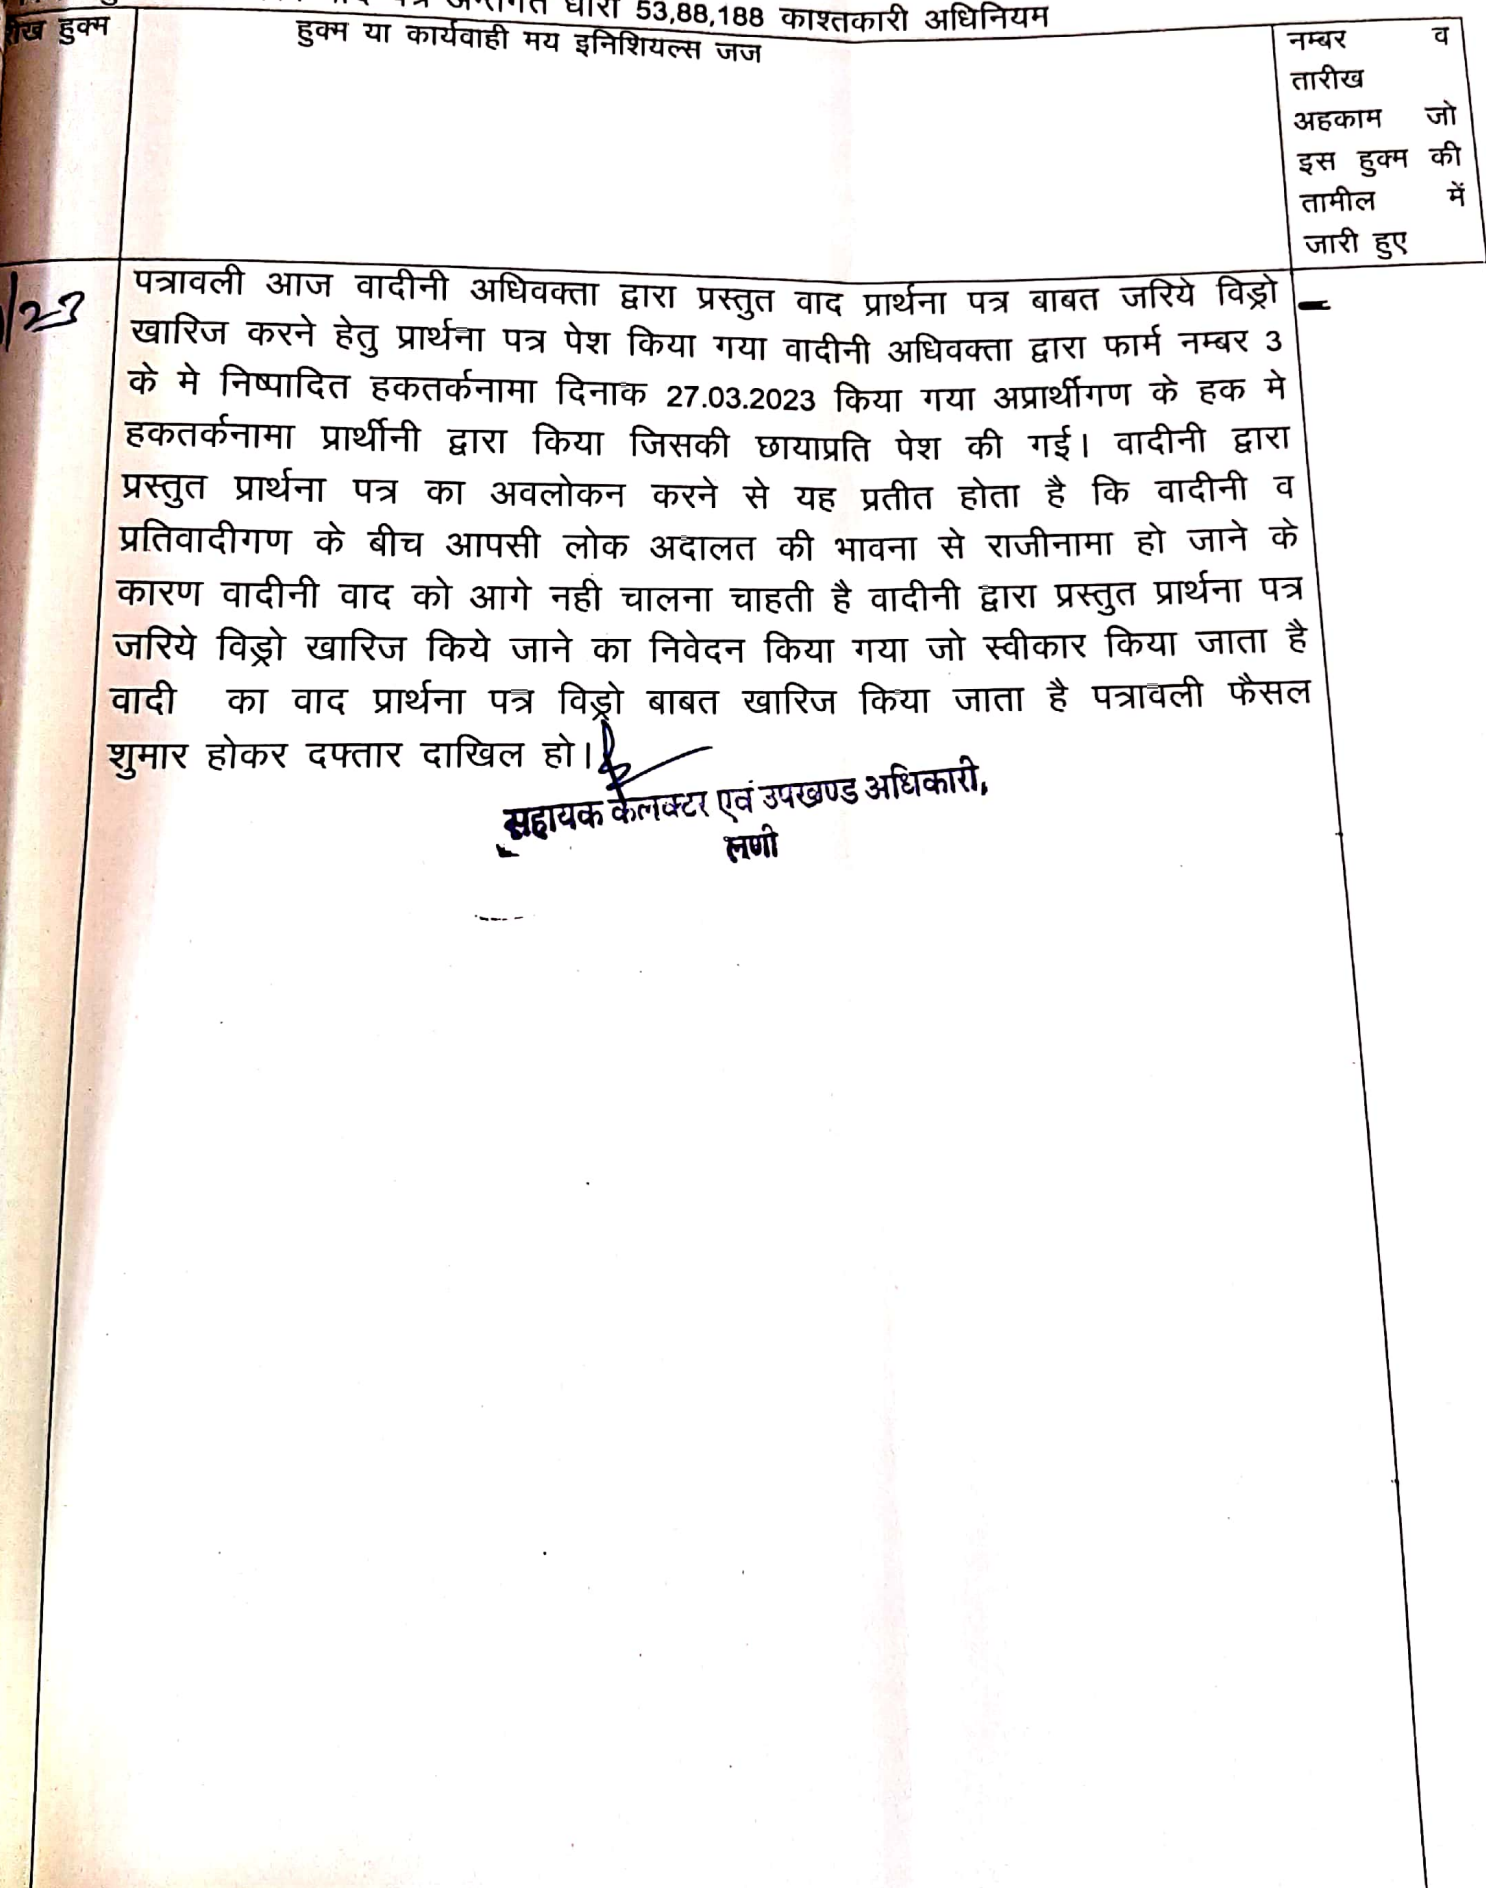 अन्तर्गत धारा 53,88,188 काश्तकारी अधिनियम
हुक्म
हुक्म या कार्यवाही मय इनिशियल्स जज
नम्बर व
तारीख
अहकाम जो
इस हुक्म की
तामील में
जारी हुए
/23
पत्रावली आज वादीनी अधिवक्ता द्वारा प्रस्तुत वाद प्रार्थना पत्र बाबत जरिये विड्रो
खारिज करने हेतु प्रार्थना पत्र पेश किया गया वादीनी अधिवक्ता द्वारा फार्म नम्बर 3
के मे निष्पादित हकतर्कनामा दिनाक 27.03.2023 किया गया अप्रार्थीगण के हक मे
हकतर्कनामा प्रार्थीनी द्वारा किया जिसकी छायाप्रति पेश की गई। वादीनी द्वारा
प्रस्तुत प्रार्थना पत्र का अवलोकन करने से यह प्रतीत होता है कि वादीनी व
प्रतिवादीगण के बीच आपसी लोक अदालत की भावना से राजीनामा हो जाने के
कारण वादीनी वाद को आगे नही चालना चाहती है वादीनी द्वारा प्रस्तुत प्रार्थना पत्र
जरिये विड्रो खारिज किये जाने का निवेदन किया गया जो स्वीकार किया जाता है
वादी का वाद प्रार्थना पत्र विड्रो बाबत खारिज किया जाता है पत्रावली फैसल
शुमार होकर दफ्तार दाखिल हो।
सहायक कलक्टर एवं उपखण्ड अधिकारी,
लूणी